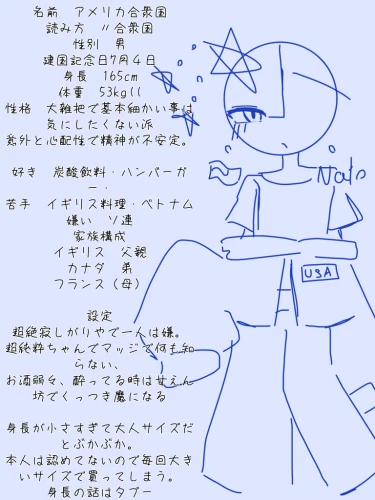 名前　アメリカ合衆国
読み方　〃合衆国
性別　男
建国記念日7月4日
身長　165cm
体重　53kg((
性格　大雑把で基本細かい事は
気にしたくない派
意外と心配性で精神が不安定。
好き　炭酸飲料・ハンバーガ
ー・
苦手　イギリス料理・ベトナム
嫌い　ソ連
家族構成
イギリス　父親
カナダ　弟
フランス（母）
設定
超絶寂しがりやで一人は嫌。
超純粋ちゃんでマッジで何も知
らない、
お酒弱々、酔ってる時は甘えん
坊でくっつき魔になる
身長が小さすぎて大人サイズだ
とぶかぶか。
本人は認めてないので毎回大き
いサイズで買ってしまう。
身長の話はタブー
Nato
USA